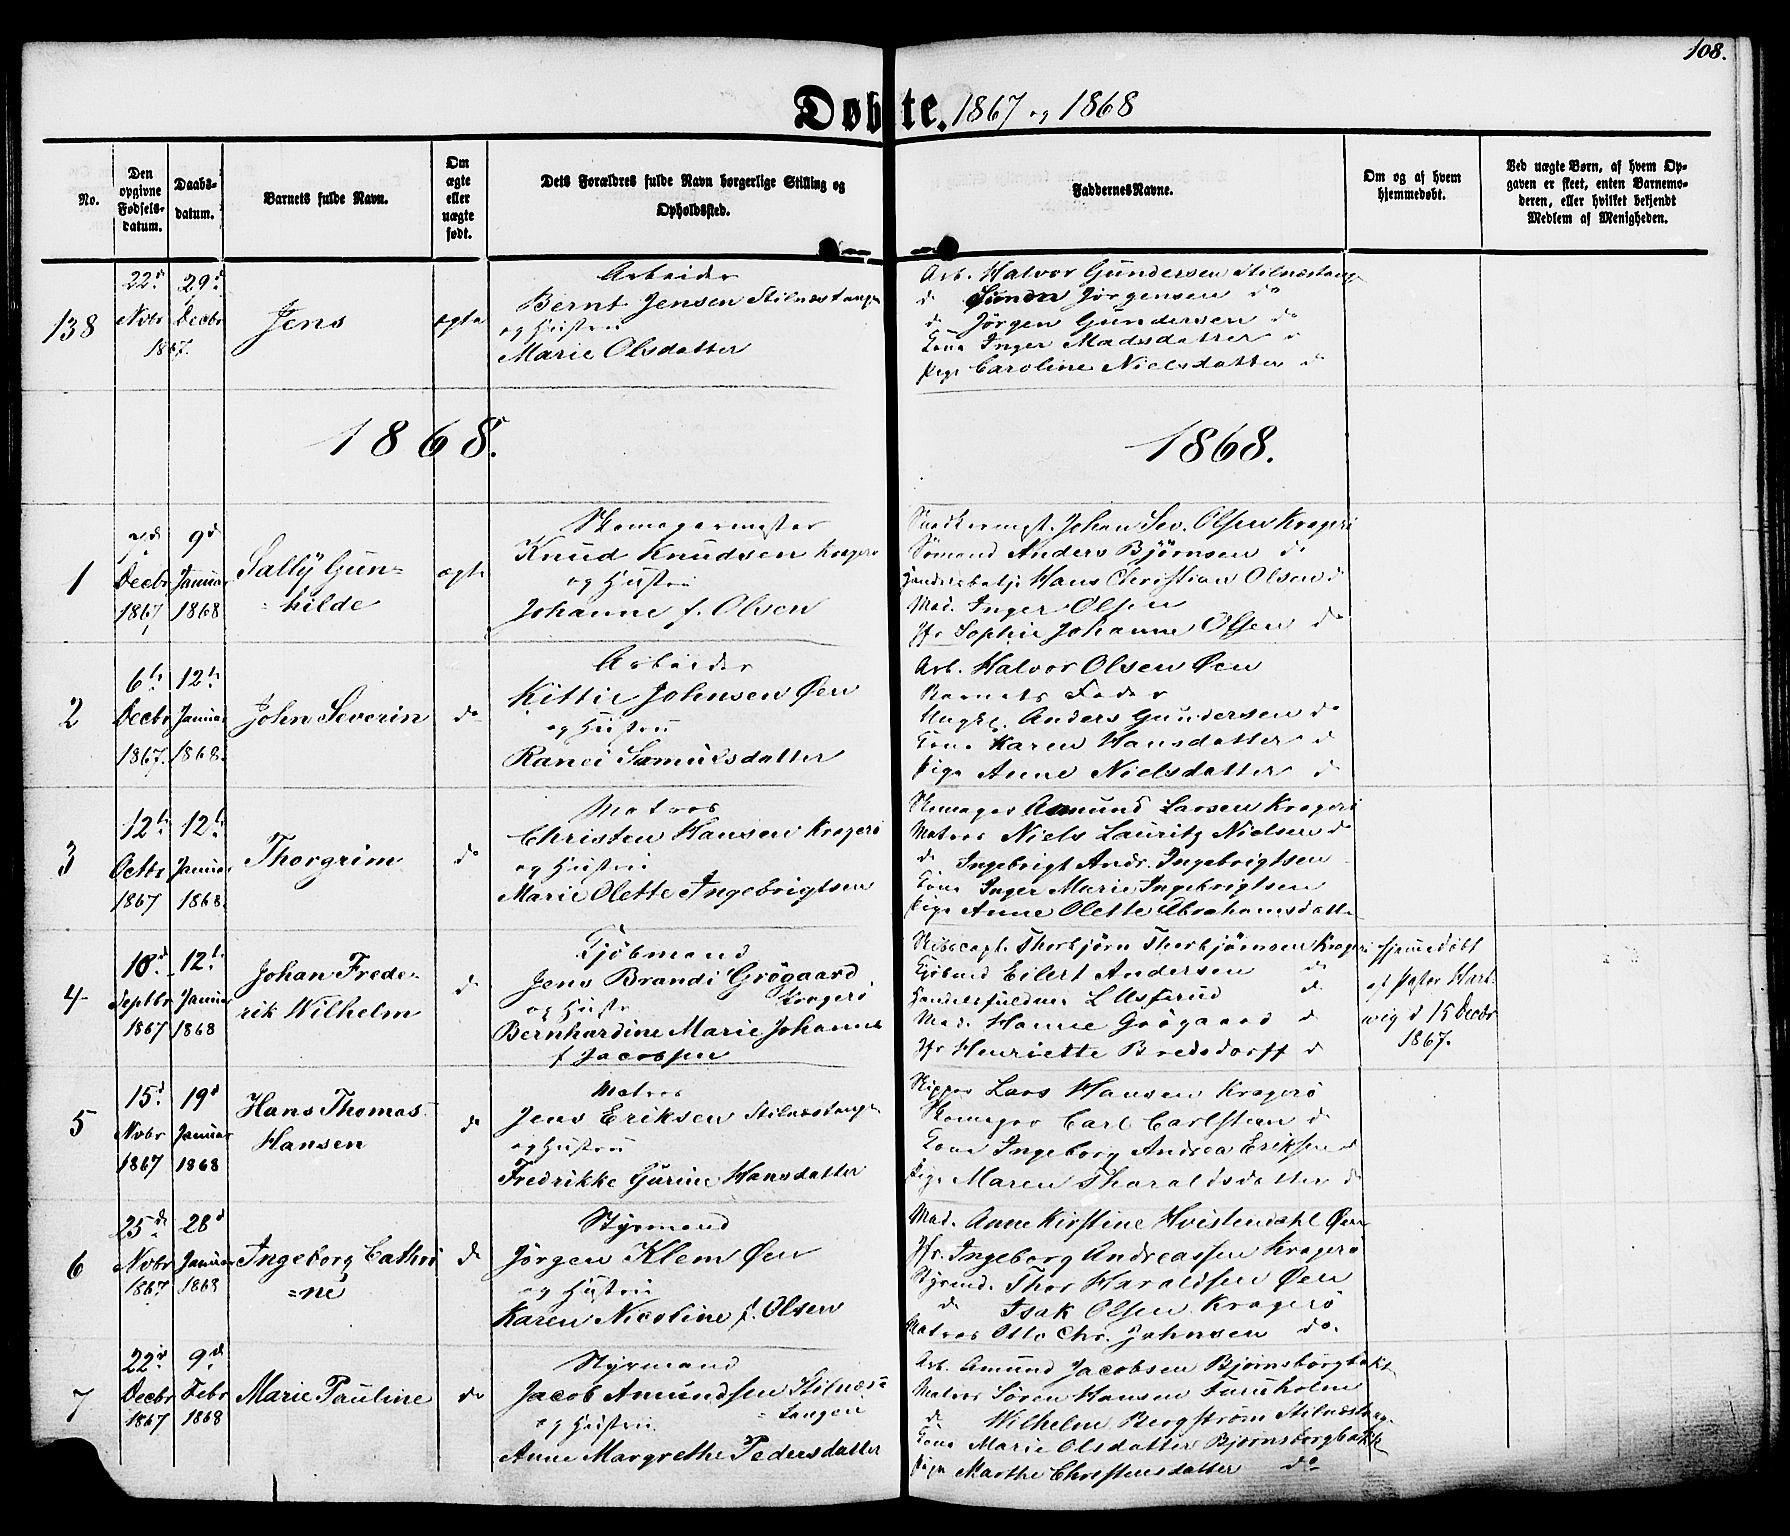 108.
Døbte. 1867 og 1868
No.
Den opgivne Fødsels-datum.
Daabs-datum.
Barnets fulde Navn.
Om ægte eller uægte født.
Dets Forældres fulde Navn borgerlige Stilling og Opholdssted.
Faddernes Navne.
Om og af hvem hjemmedøbt.
Ved uægte Børn, af hvem Opgaven er skeet, enten Barnemoderen, eller hvilket bekjendt Medlem af Menigheden.
138
22d Novbr
29d Decbr
1867.
Jens
ægte
Arbeider
Bernt Jensen Stilnæstangen
og Hustru
Marie Olsdatter
Arb. Halvor Gundersen Stilnæstang
d Simon Jørgensen do
d Jørgen Gundersen do
Kone Inger Madsdatter
Pige Caroline Nielsdatter do
1868.
1868.
1
Decbr 1867
9d Januar 1868
Sally Gun-
=hilde
ægte
Skomagermester
Knud Knudsen Kragerø
og Hustru
Johanne f. Olsen
Snedkermst. Johan Sev. Olsen Kragerø
Sømand Anders Bjørnsen do
Handelsbetj. Hans Christian Olsen do
Mad. Inger Olsen
Jfr Sophie Johanne Olsen do
2
6te Decbr 1867.
12te Januar 1868.
John Severin
do
Arbeider
Kittil Johnsen Øen
og Hustru
Ranei Samuelsdatter
Arb. Halvor Olsen Øen
Barnets Fader
Ungk. Anders Gundersen do
Kone Karen Hansdatter do
Pige Anne Nielsdatter do
3
12te Octbr 1867
12te Januar 1868.
Thorgrim
do
Matros
Christen Hansen Kragerø
og Hustru
Marie Olette Ingebrigtsen
Skomager Amund Larsen Kragerø
Matros Niels Lauritz Nielsen do
d Ingebrigt Andr. Ingebrigtsen
Kone Inger Marie Ingebrigtsen
Pige Anne Olette Abrahamsdatter
4
18d Septbr 1867
12te Januar 1868
Johan Frede-
rik Wilhelm
do
Kjøbmand
Jens Brandi Grøgaard
Kragerø
og Hustru
Bernhardine Marie Johanne
f Jacobsen
Skibscapt. Thorbjørn Thorbjørnsen Kragerø
Kjøbmd Eilert Andersen do
Handelsfuldm. L Usterud do
Mad. Hanne Grøgaard d
Jfr Henriette Bredsdorff d
Hjemmedøbt
af Pastor Hart-
wig d 15 Decbr
1867.
5
15d Novbr 1867
19d Januar 1868
Hans Thomas
Hansen
do
Matros
Jens Eriksen Stilnæstangen
og Hustru
Fredrikke Gurine Hansdatter
Skipper Lars Hansen Kragerø
Skomager Carl Carlsten do
Kone Ingeborg Andrea Eriksen do
Pige Maren Tharaldsdatter do
6
25de Novbr 1867
26d Januar 1868
Ingeborg Cathri
=ne
do
Styrmand
Jørgen Klem Øen
og Hustru
Karen Nicoline f. Olsen
Mad. Anne Kirstine Hvistendahl Øen
Jfr. Ingeborg Andreassen Kragerø
Styrmd. Thor Haraldsen Øen
do Isak Olsen Kragerø
Matros Otto Chr. Johnsen do.
7
22d Decbr 1867
9d Febr 1868
Marie Pauline
do
Styrmand
Jacob Amundsen Stilnæs-
=tangen
og Hustru
Anne Margrethe Pedersdatter
Arb. Amund Jacobsen Bjørnsborgbakk
Matros Søren Hansen Furuholm
do Wilhelm Bergstrøm Stilnæstang.
Kone Marie Olsdatter Bjørnsborgbakke
Pige Marthe Christensdatter do